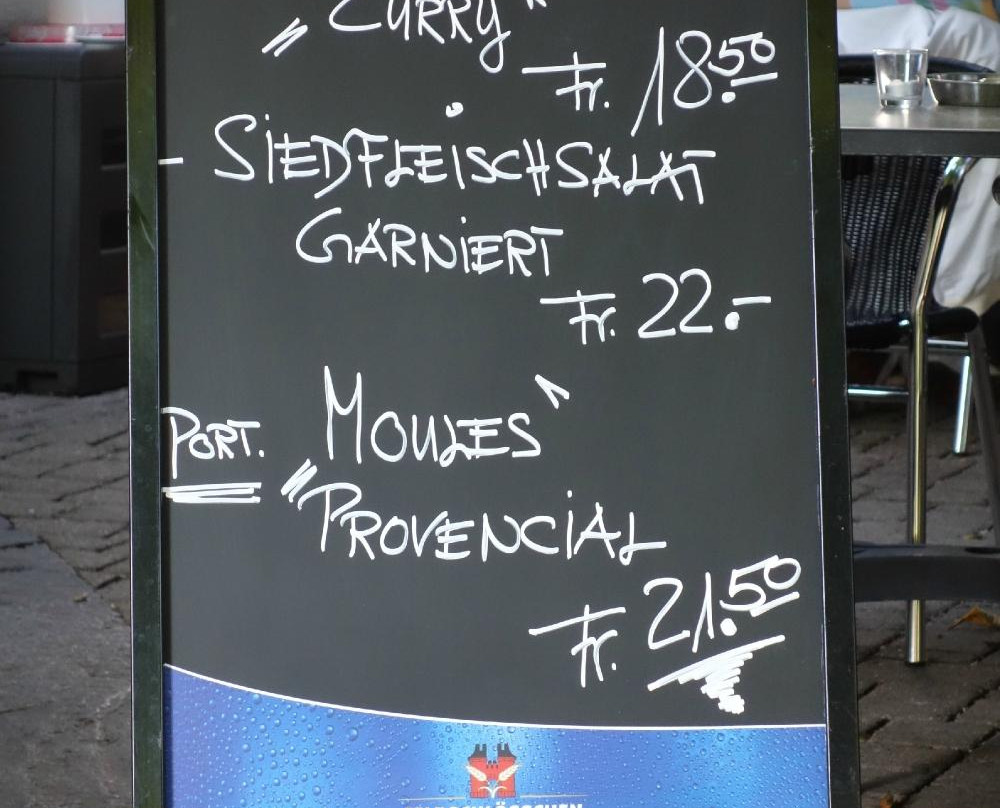 „CURRY"
Fr. 18.50
- SIEDFLEISCHSALAT
GARNIERT
Fr. 22.-
PORT. MOULES
"PROVENCIAL"
Fr. 21.50